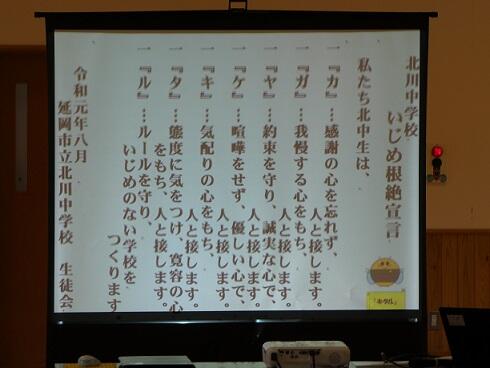 北川中学校
いじめ根絶宣言
私たち北中生は、
一『カ』…感謝の心を忘れず、
人と接します。
一『ガ』…我慢する心をもち、
人と接します。
一『ヤ』…約束を守り、誠実な心で、
人と接します。
一『ケ』…喧嘩をせず、優しい心で、
人と接します。
一『キ』…気配りの心をもち、
人と接します。
一『タ』…態度に気をつけ、寛容の心
をもち、人と接します。
一『ル』…ルールを守り、
いじめのない学校を
つくります
令和元年八月
延岡市立北川中学校 生徒会